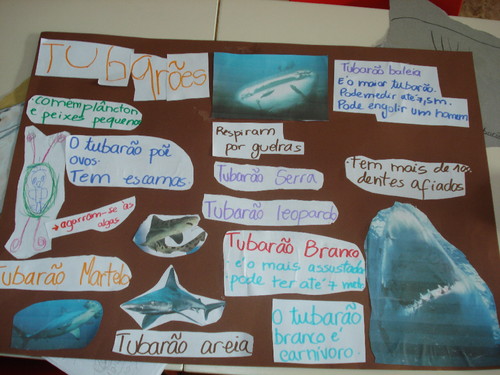 Tubarões
Tubarão baleia
É o maior tubarão.
Pode medir até 7,5m.
Pode engolir um homem
comem plâncton
e peixes pequenos
Respiram
por guelras
O tubarão põe
ovos.
Tem escamas.
Tubarão Serra
Tem mais de
dentes afiados
Tubarão leopardo
→ agarram-se às
algas
Tubarão Branco
é o mais assustador
pode ter até 7 metros
Tubarão Martelo
O tubarão
branco é
carnívoro.
Tubarão areia